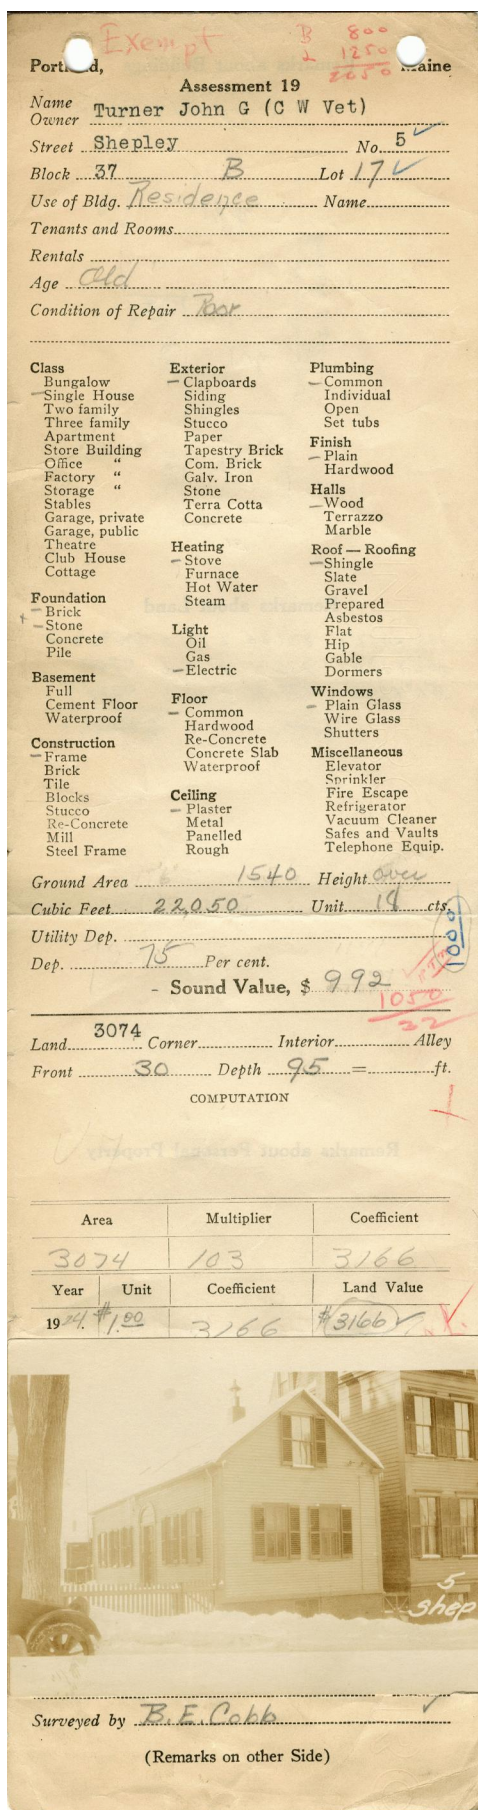 Exempt
B 800
L 1250
2050
Portland, Maine
Assessment 19
Name
Owner Turner John G (C W Vet)
Street Shepley No. 5
Block 37 B Lot 17
Use of Bldg. Residence Name
Tenants and Rooms
Rentals
Age Old
Condition of Repair Poor
Class
Bungalow
Single House
Two family
Three family
Apartment
Store Building
Office "
Factory "
Storage "
Stables
Garage, private
Garage, public
Theatre
Club House
Cottage
Foundation
Brick
+ Stone
Concrete
Pile
Basement
Full
Cement Floor
Waterproof
Construction
Frame
Brick
Tile
Blocks
Stucco
Re-Concrete
Mill
Steel Frame
Exterior
Clapboards
Siding
Shingles
Stucco
Paper
Tapestry Brick
Com. Brick
Galv. Iron
Stone
Terra Cotta
Concrete
Heating
Stove
Furnace
Hot Water
Steam
Light
Oil
Gas
Electric
Floor
Common
Hardwood
Re-Concrete
Concrete Slab
Waterproof
Ceiling
Plaster
Metal
Panelled
Rough
Plumbing
Common
Individual
Open
Set tubs
Finish
Plain
Hardwood
Halls
Wood
Terrazzo
Marble
Roof — Roofing
Shingle
Slate
Gravel
Prepared
Asbestos
Flat
Hip
Gable
Dormers
Windows
Plain Glass
Wire Glass
Shutters
Miscellaneous
Elevator
Sprinkler
Fire Escape
Refrigerator
Vacuum Cleaner
Safes and Vaults
Telephone Equip.
Ground Area 1540 Height Over
Cubic Feet 22,050 Unit 18 cts.
1000
Utility Dep.
Dep. 75 Per cent.
- Sound Value, $ 992
1050
22
Land 3074 Corner Interior Alley
Front 30 Depth 95 = ft.
COMPUTATION
Area Multiplier Coefficient
3074 103 3166
Year Unit Coefficient Land Value
1924. $1.00 3166 $3166
5
Shep
Surveyed by B.E. Cobb
(Remarks on other Side)